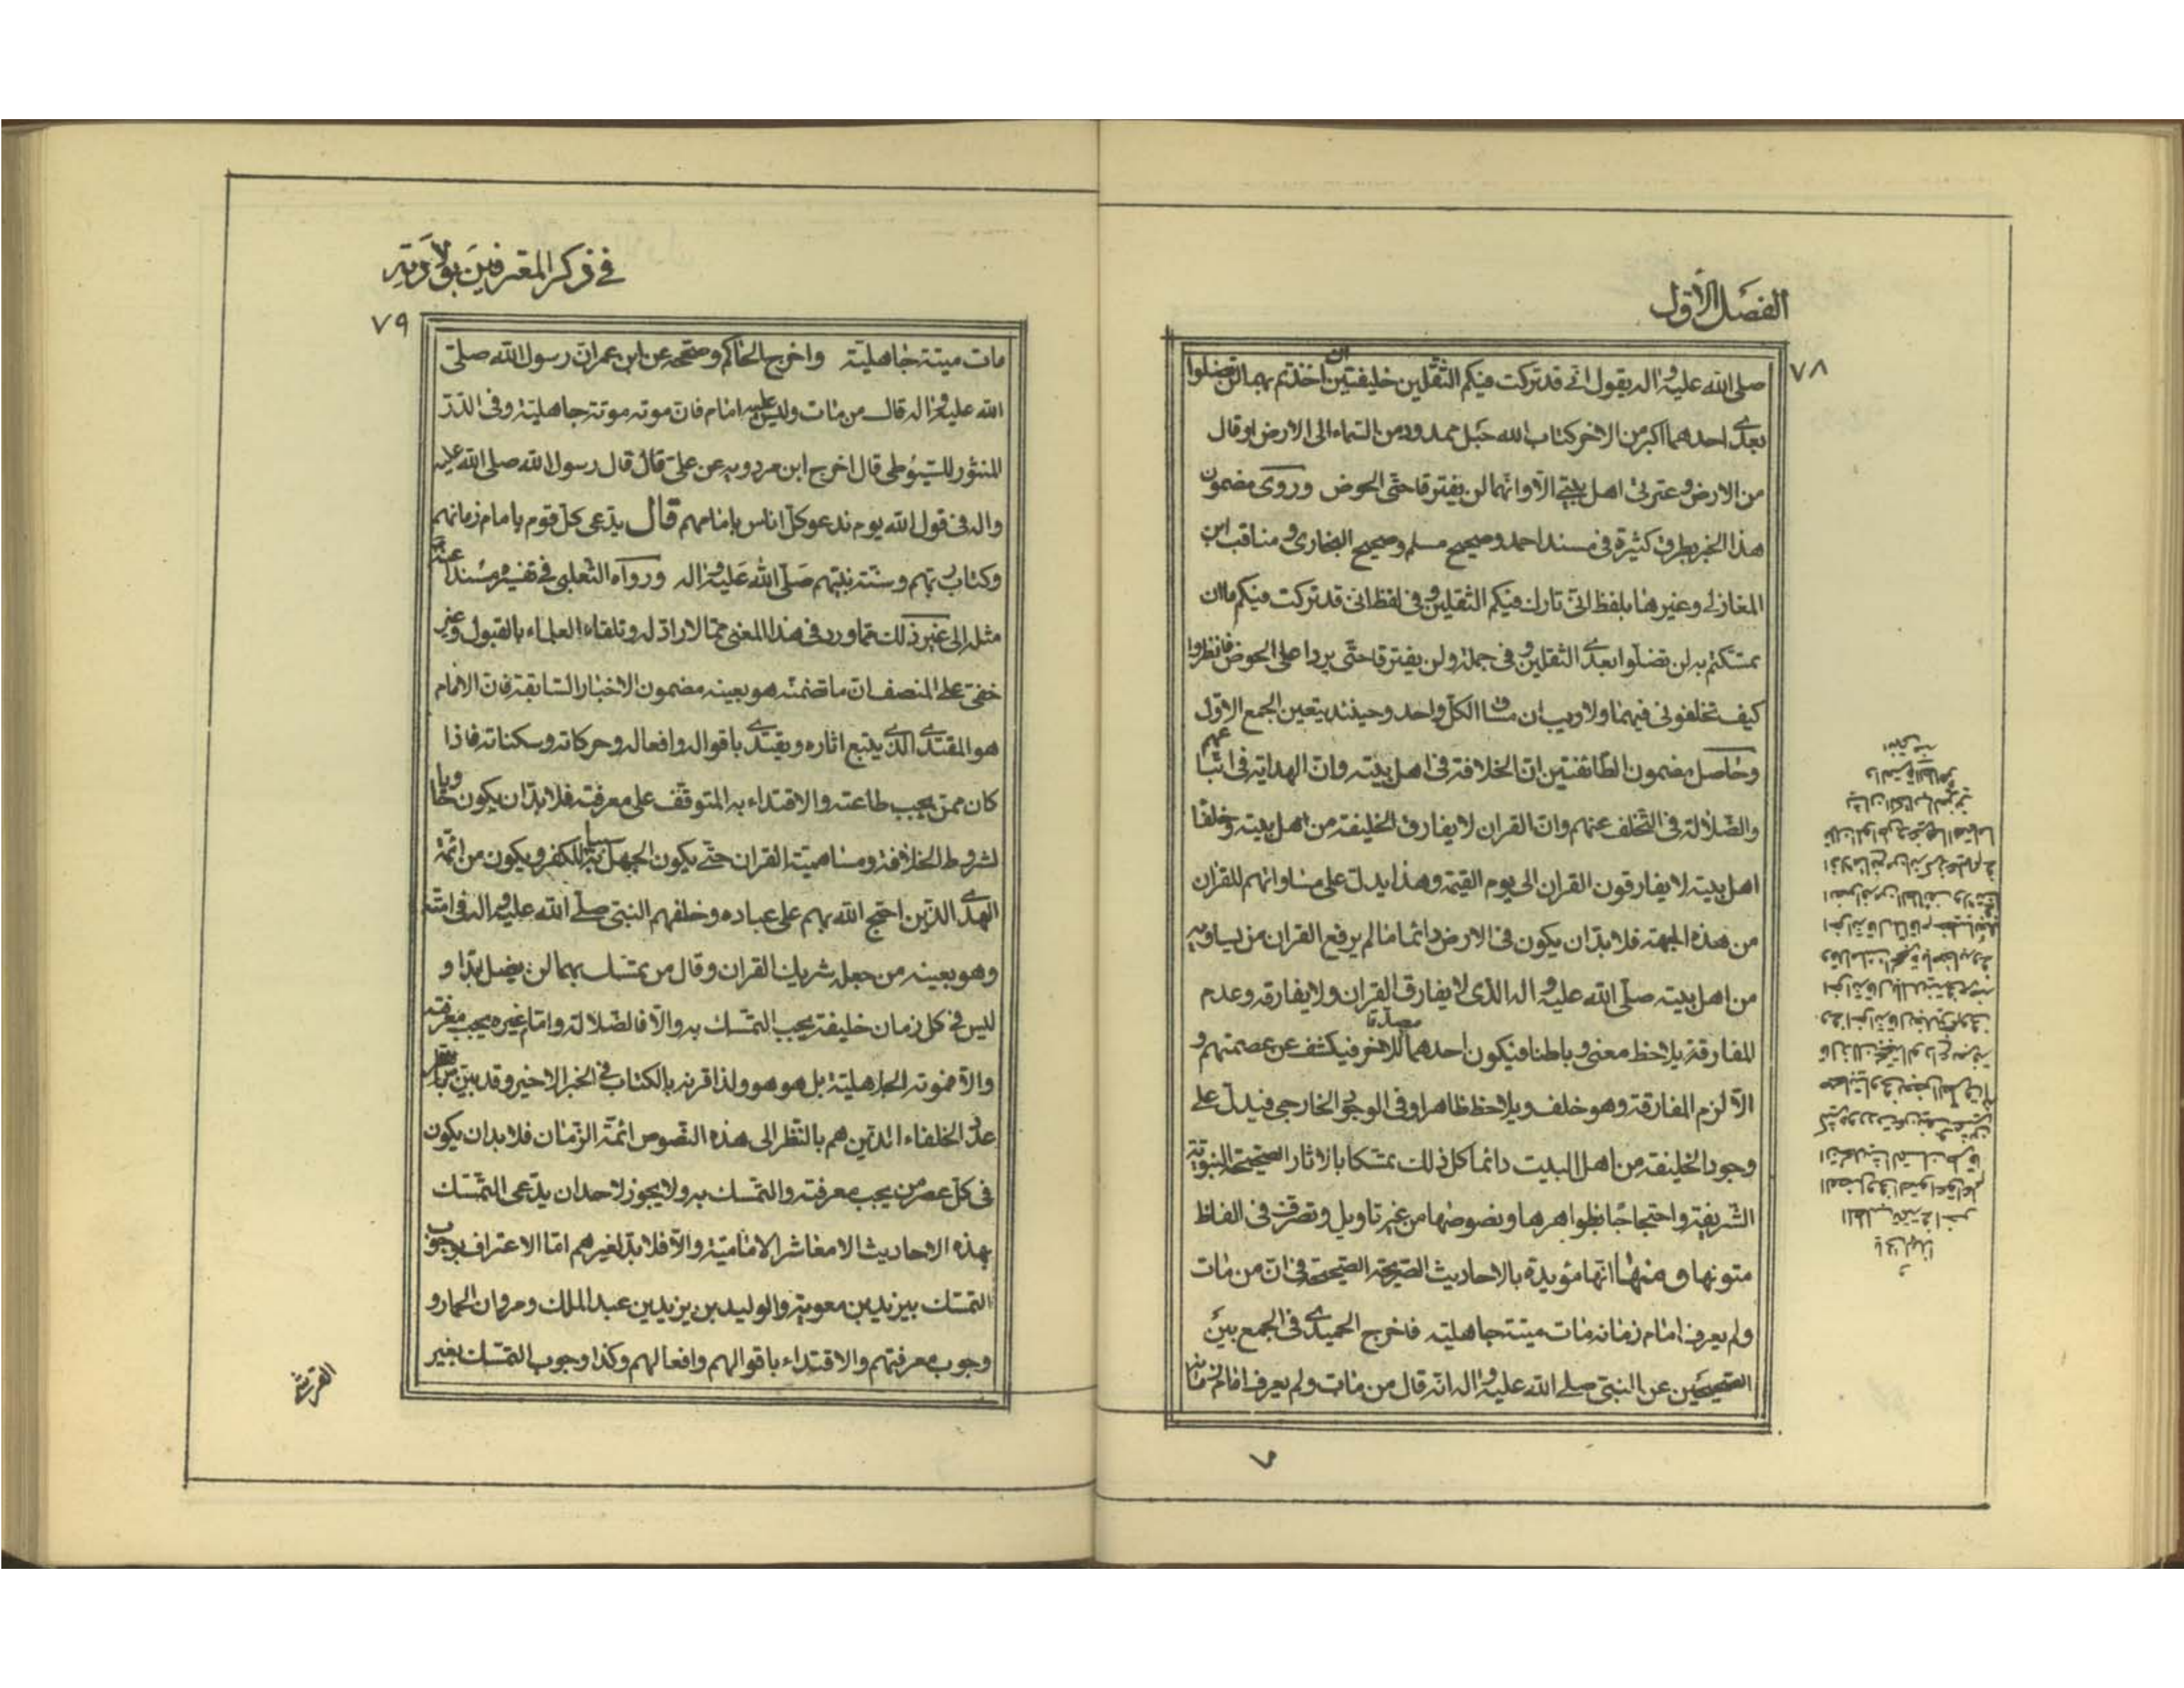 الفصل الأول
٧٨
صلى الله عليه واله يقول انى قد تركت فيكم الثقلين خليفتين ان اخذتم بهما لن تضلوا
بعدى احدهما اكبر من الاخر كتاب الله حبل ممدود من السماء الى الارض او قال
من الارض وعترتى اهل بيتى الا وانهما لن يفترقا حتى الحوض وروى مضمون
هذا الخبر بطرق كثيرة فى مسند احمد وصحيح مسلم وصحيح البخارى ومناقب ابن
المغازلى وغيرها بلفظ انى تارك فيكم الثقلين وفى لفظ انى قد تركت فيكم ما ان
تمسكتم به لن تضلوا بعدى الثقلين وفى جملة ولن يفترقا حتى يردا على الحوض فانظروا
كيف تخلفونى فيهما ولا ريب ان مساق الكل واحد وحينئذ يتعين الجمع الاول
وحاصل مضمون الطائفتين ان الخلافة فى اهل بيته وان الهداية فى اتباعهم
والضلالة فى التخلف عنهم وان القران لا يفارق الخليفة من اهل بيته وخلفا
اهل بيته لا يفارقون القران الى يوم القيمة وهذا يدل على مساواتهم للقران
من هذه الجهة فلا بد ان يكون فى الارض دائما ما لم يرفع القران من يساويه
من اهل بيته صلى الله عليه واله الذى لا يفارق القران ولا يفارقه وعدم
المفارقة يلاحظ معنى وباطنا فيكون احدهما مصدقا للاخر فيكشف عن عصمتهم و
الا لزم المفارقة وهو خلف ويلاحظ ظاهرا وفى الوجود الخارجى فيدل على
وجود الخليفة من اهل البيت دائما كل ذلك تمسكا بالاثار الصحيحة النبوية
الشريفة واحتجاجا بظواهرها ونصوصها من غير تاويل وتصرف فى الفاظ
متونها ومنها انها مؤيدة بالاحاديث الصريحة الصحيحة فى ان من مات
ولم يعرف امام زمانه مات ميتة جاهلية فاخرج الحميدى فى الجمع بين
الصحيحين عن النبى صلى الله عليه واله انه قال من مات ولم يعرف امام زمانه
فى ذكر المعترفين بولادته
٧٩
مات ميتة جاهلية واخرج الحاكم وصححه عن ابن عمر ان رسول الله صلى
الله عليه واله قال من مات وليس عليه امام فان موته موتة جاهلية وفى الدر
المنثور للسيوطى قال اخرج ابن مردويه عن على قال قال رسول الله صلى الله عليه
واله فى قول الله يوم ندعو كل اناس بامامهم قال يدعى كل قوم بامام زمانهم
وكتاب ربهم وسنة نبيهم صلى الله عليه واله ورواه الثعلبى فى تفسيره مسندا عنه
مثله الى غير ذلك مما ورد فى هذا المعنى مما لا راد له وتلقاه العلماء بالقبول وغير
خفى على المنصف ان ما تضمنه هو بعينه مضمون الاخبار السابقة فان الامام
هو المقتدى الذى يتبع اثاره ويقتدى باقواله وافعاله وحركاته وسكناته فاذا
كان ممن يجب طاعته والاقتداء به المتوقف على معرفته فلا بد ان يكون حاويا
لشروط الخلافة ومساهمية القران حتى يكون الجهل به سببا للكفر ويكون من ائمة
الهدى الذين احتج الله بهم على عباده وخلفهم النبى صلى الله عليه واله فى امته
وهو بعينه من جعله شريك القران وقال من تمسك بهما لن يضل ابدا و
ليس فى كل زمان خليفة يجب التمسك به والا فالضلالة وامام غيره يجب معرفته
والا فموته الجاهلية بل هو هو ولذا قرنه بالكتاب فى الخبر الاخير وقد بين
عدد الخلفاء الذين هم بالنظر الى هذه النصوص ائمة الزمان فلا بد ان يكون
فى كل عصر من يجب معرفته والتمسك به ولا يجوز لاحد ان يدعى التمسك
بهذه الاحاديث الا معاشر الامامية والا فلا بد لغيرهم اما الاعتراف بوجوب
التمسك بيزيد بن معوية والوليد بن يزيد بن عبد الملك ومروان الحمار و
وجوب معرفتهم والاقتداء باقوالهم وافعالهم وكذا وجوب التمسك بغير